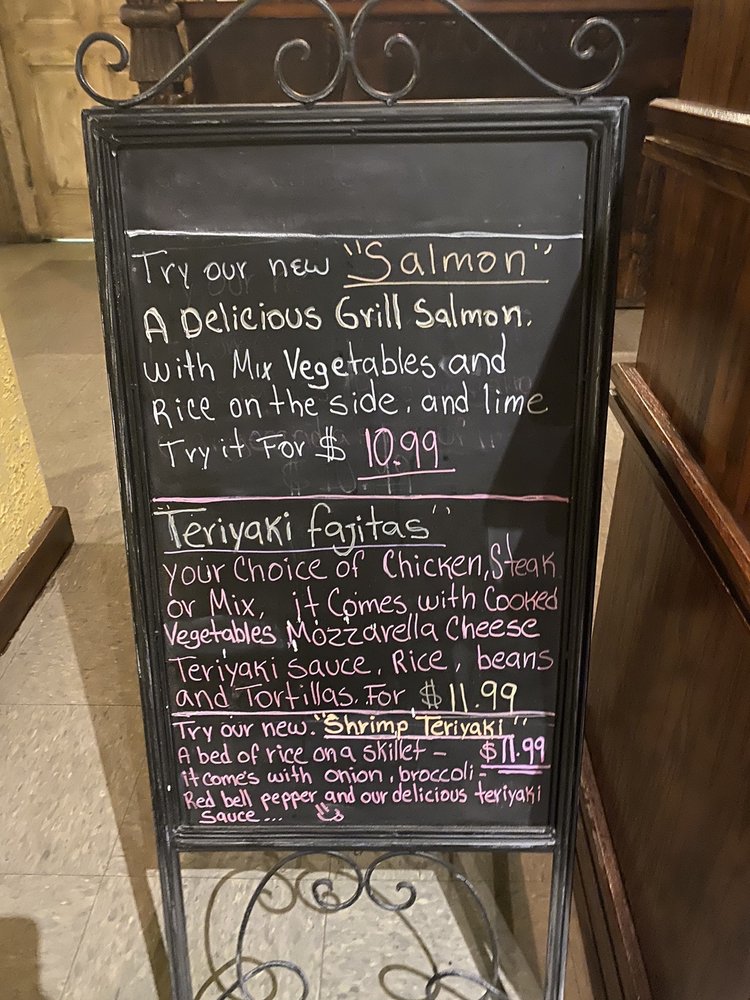 Try our new "Salmon"
A Delicious Grill Salmon.
with Mix Vegetables and
Rice on the side. and lime
Try it For $ 10.99
"Teriyaki fajitas"
your Choice of Chicken, Steak
or Mix, it Comes with Cooked
Vegetables Mozzarella Cheese
Teriyaki sauce, Rice, beans
and Tortillas. For $11.99
Try our new. "Shrimp Teriyaki"
A bed of rice on a skillet - $11.99
it comes with onion, broccoli -
Red bell pepper and our delicious teriyaki
sauce...